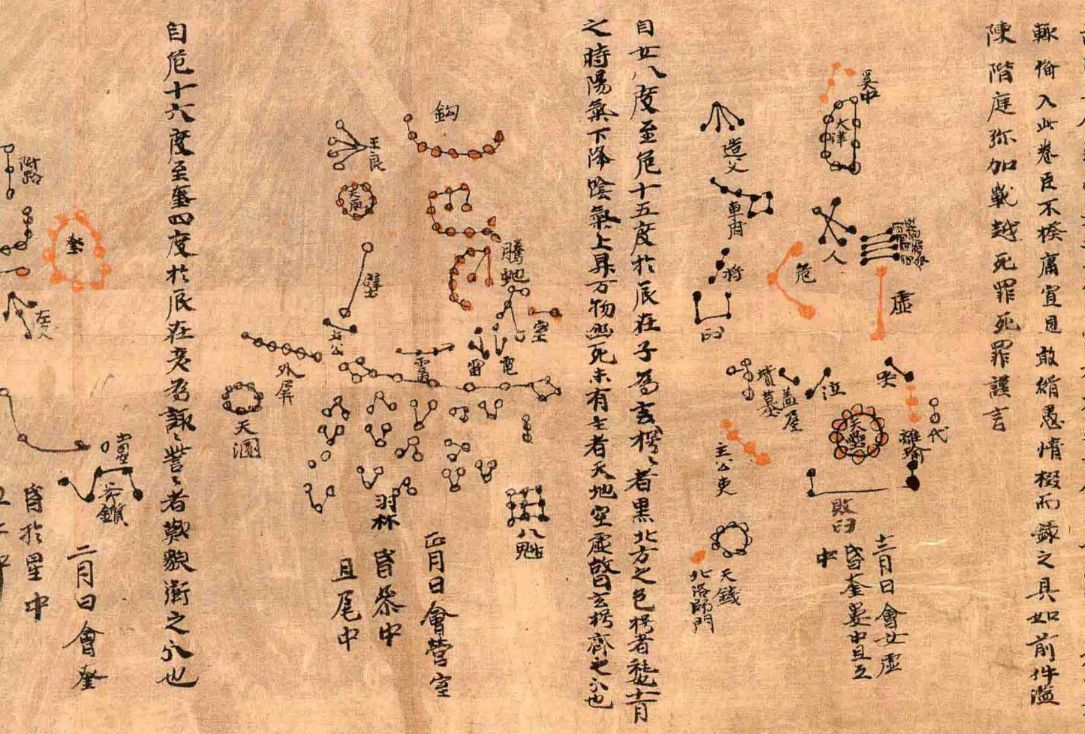 輙偹入此卷臣不揆庸冝見敢緝愚情掇而錄之具如前件濫
陳階庭弥加戰越死罪死罪謹言
天津
造父
車府
人
危
虛
杵
臼
墳墓
蓋屋
泣
哭
天壘
代
敗臼
天錢
北落師門
十二月日會女虛
昏奎婁中旦互
中
自女八度至危十五度於辰在子為玄枵枵者黑北方之色枵者秏也十一月
之時陽氣下降陰氣上昇万物幽死未有生者天地空虛曰玄枵齊之分也
鈎
王良
騰虵
室
壁
土公
雷
電
外屏
天溷
羽林
八魁
正月日會營室
昏參中
旦尾中
自危十六度至奎四度於辰在亥為諏訾訾者歎貌衛之分也
閣路
奎
二月日會奎
昏於星中